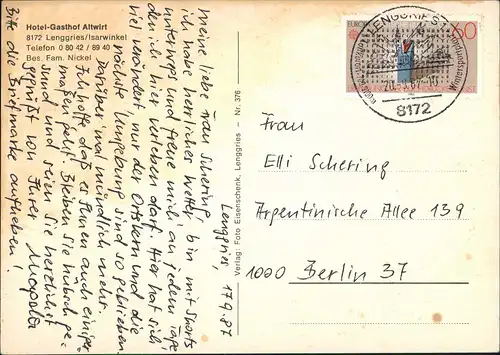 Hotel-Gasthof Altwirt
8172 Lenggries/Isarwinkel
Telefon 0 80 42 / 89 40
Bes. Fam. Nickel
Lenggries, 17.9.87
Meine liebe Frau Schering,
ich habe herrliches Wetter, bin mit Shorts
unterwegs und freue mich an jedem Tage,
den ich hier verleben darf. Hier hat sich
viel verändert, nur der Ortskern und die
nächste Umgebung sind so geblieben.
Darüber mal mündlich mehr.
Ich hoffe daß es Ihnen auch einiger-
maßen geht. Bleiben Sie hübsch ge-
sund und seien Sie herzlichst
gegrüßt von Ihrer
Bitte die Briefmarke aufheben!
Verlag: Foto Eisenschenk, Lenggries – Nr. 376
EUROPA
60
LENGGRIES
8172
Frau
Elli Schering
Argentinische Allee 139
1000 Berlin 37